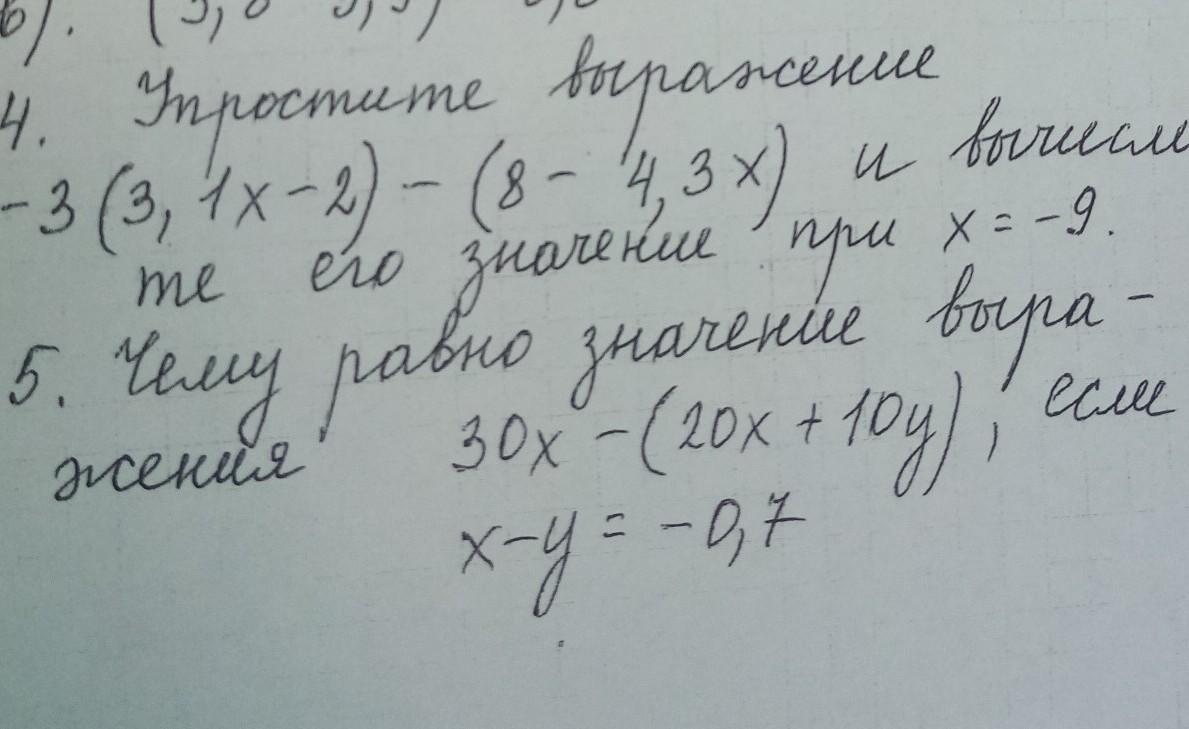 4. Упростите выражение
-3(3,1x-2)-(8-4,3x) и вычисли
те его значение при x=-9.
5. Чему равно значение выра-
жения 30x-(20x+10y), если
x-y=-0,7